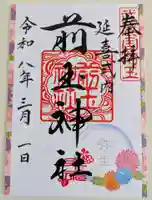 奉拝
延喜式内
前玉神社
令和八年三月一日
弥生